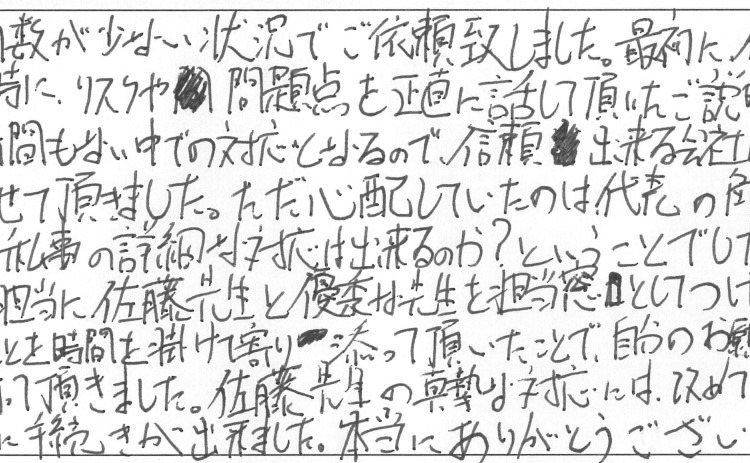 数が少ない状況でご依頼致しました。最初に
時に、リスクや問題点を正直に話して頂いたご説
間もない中での対応となるので、信頼出来る会社
せて頂きました。ただ心配していたのは、代表の
私事の詳細な対応は出来るのか?ということでし
担当に佐藤先生と優秀な先生を担当としてつけ
とを時間を掛けて割り添って頂いたことで、自分のお願
って頂きました。佐藤先生の真摯な対応には、改めて
に手続きが出来ました。本当にありがとうござい